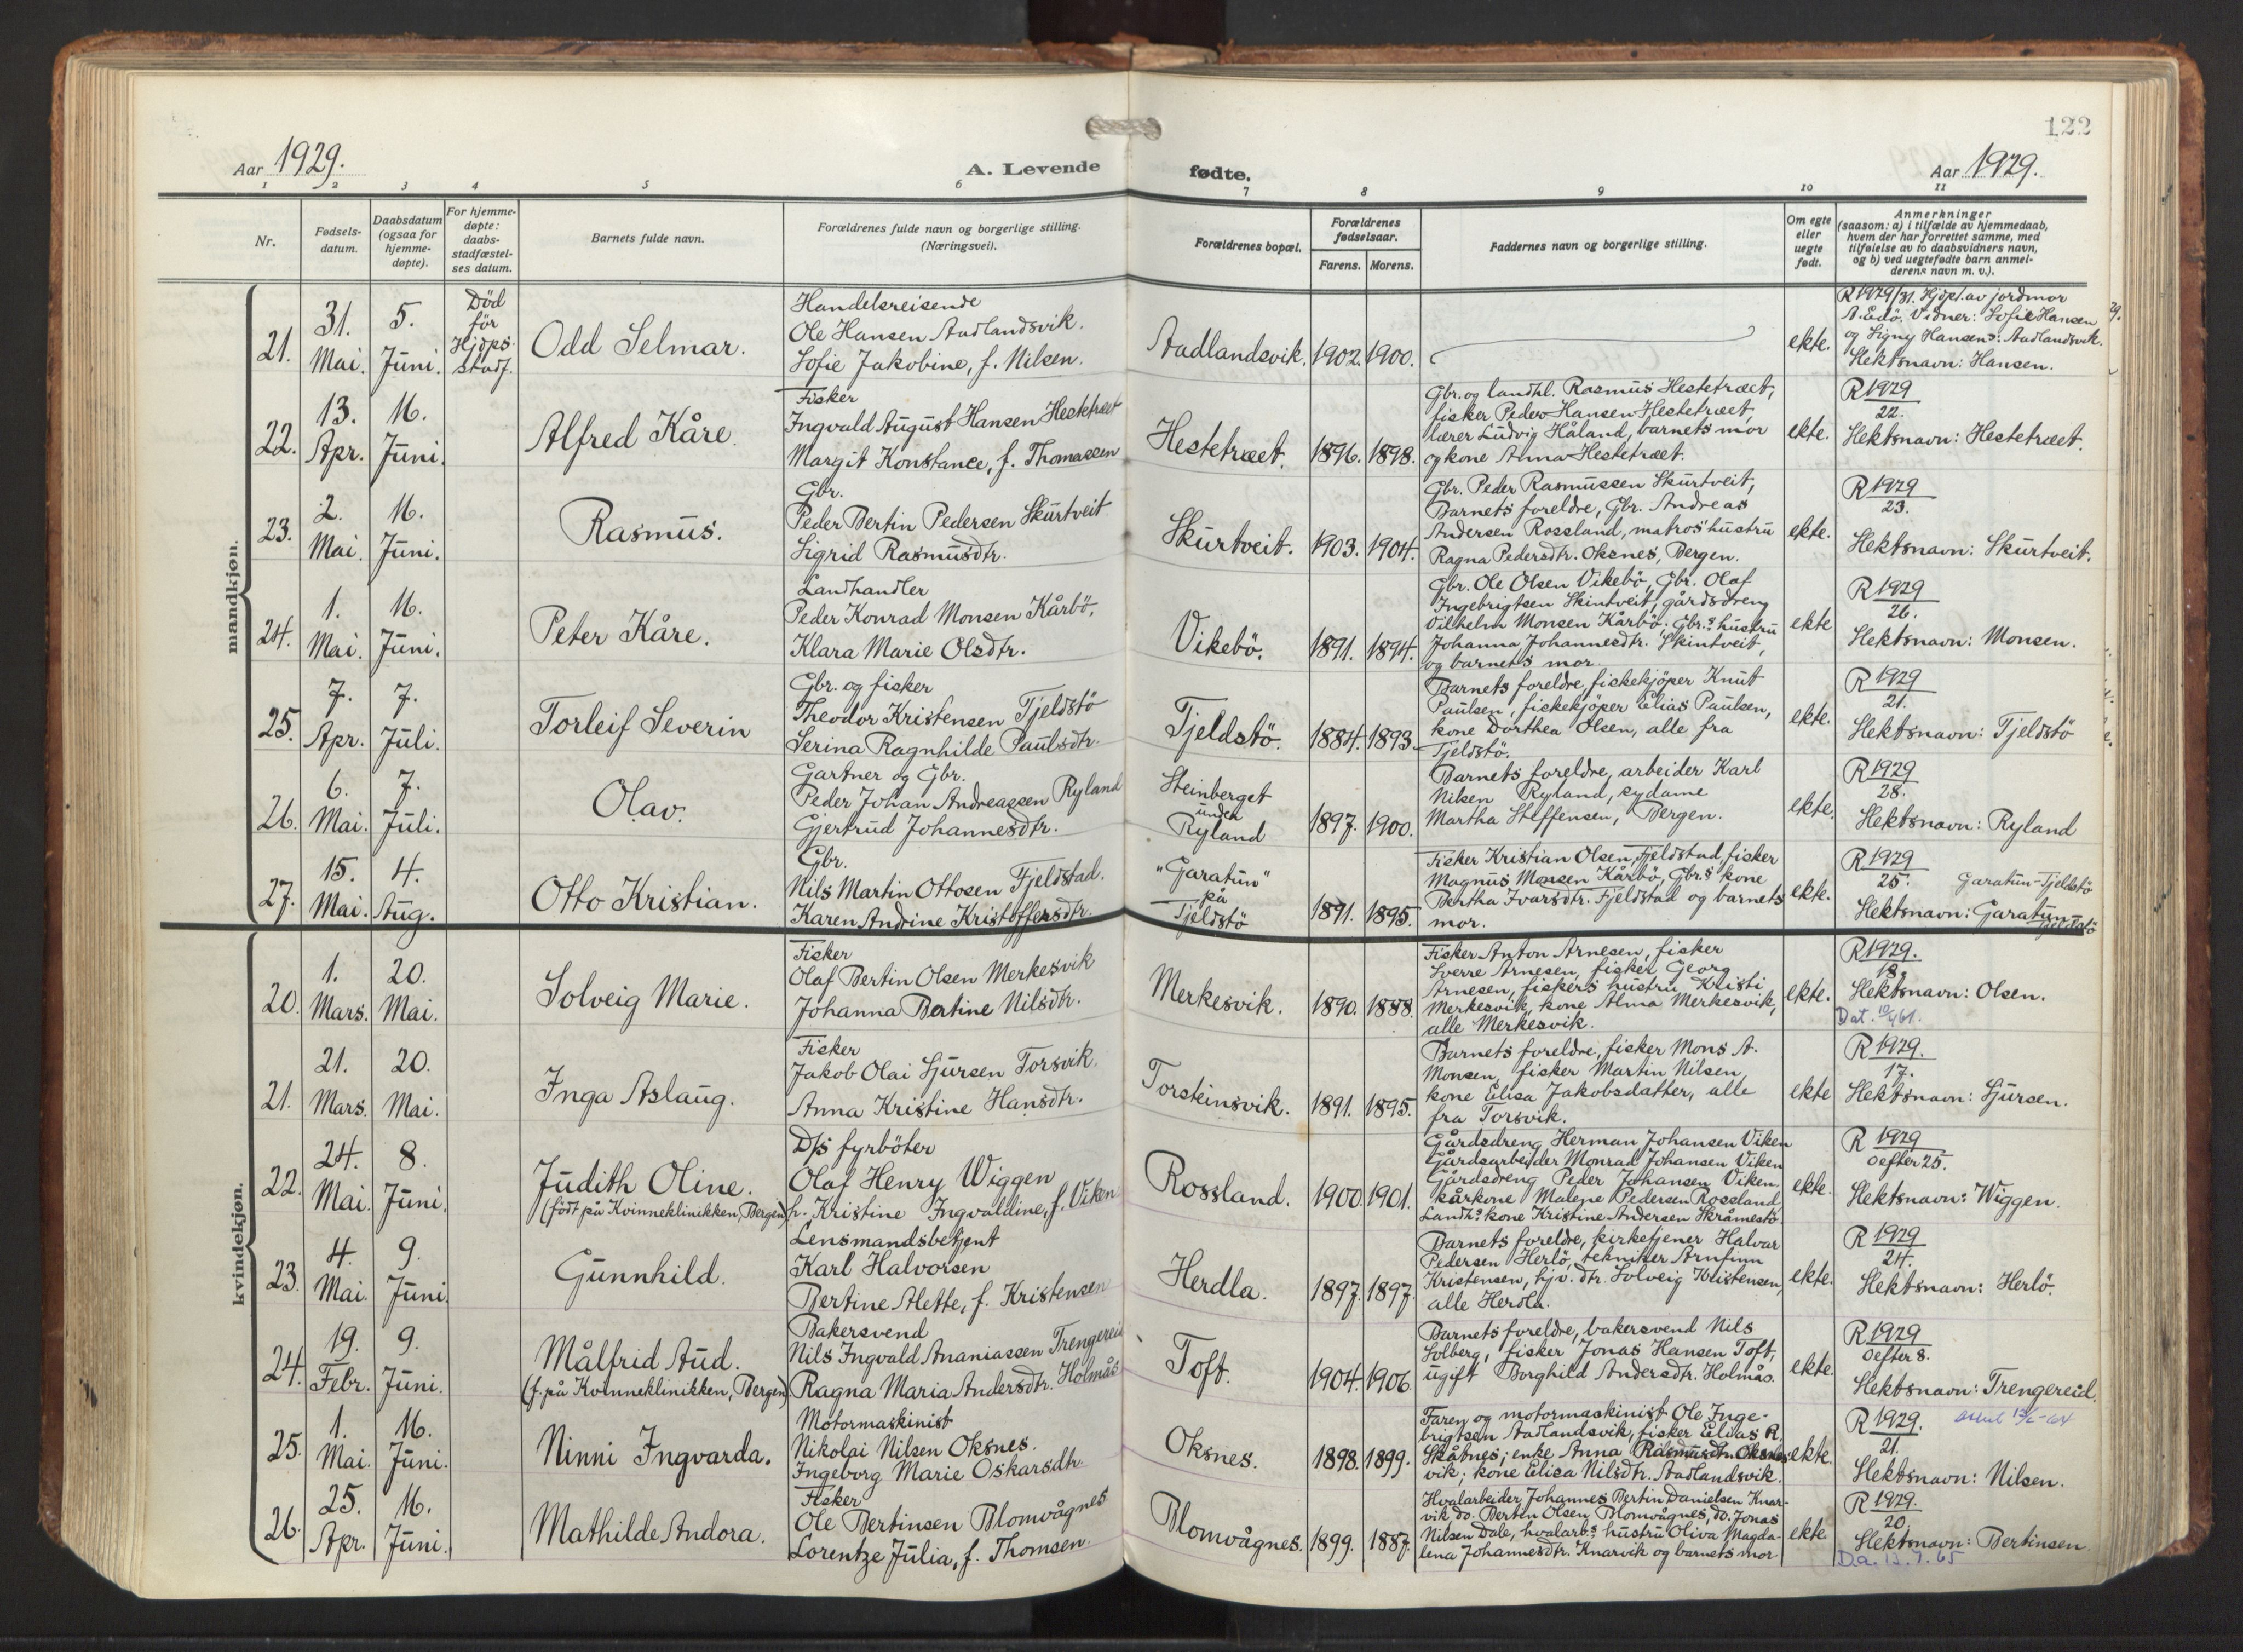 122
Aar 1929.
A. Levende
fødte.
Aar 1929.
1 2 3 4 5 6 7 8 9 10 11
Nr.
Fødsels-
datum.
Daabsdatum
(ogsaa for
hjemme-
døpte).
For hjemme-
døpte:
daabs-
stadfæstel-
ses datum.
Barnets fulde navn.
Forældrenes fulde navn og borgerlige stilling.
(Næringsvei).
Forældrenes bopæl.
Forældrenes
fødselsaar.
Farens. Morens.
Faddernes navn og borgerlige stilling.
Om egte
eller
uegte
født.
Anmerkninger
(saasom: a) i tilfælde av hjemmedaab,
hvem der har forrettet samme, med
tilføielse av to daabsvidners navn,
og b) ved uegtefødte barn anmel-
derens navn m. v.).
mandkjøn.
21.
31.
Mai.
5.
Juni.
Död
för
Hjdps.
stadf.
Odd Selmar.
Handelsreisende
Ole Hansen Aadlandsvik.
Sofie Jakobine, f. Nilsen.
Aadlandsvik.
1902.
1900.
ekte.
R 1929/31. Hjdpt. av jordmor
A. Eidö. Vidner: Sofie Hansen
og Signy Hansens: Aadlandsvik.
Slektsnavn: Hansen.
22.
13.
Apr.
16.
Juni.
Alfred Kåre.
Fisker
Ingvald August Hansen Hestetræet
Margit Konstance, f. Thomassen
Hestetræet.
1896.
1898.
Gbr. og landhl. Rasmus Hestetræet,
fisker Peder Hansen Hestetræet,
lærer Ludvig Håland, barnets mor
og kone Anna Hestetræet.
ekte.
R 1929
22.
Slektsnavn: Hestetræet.
23.
2.
Mai.
16.
Juni.
Rasmus.
Gbr.
Peder Bertin Pedersen Skurtveit
Sigrid Rasmusdtr.
Skurtveit.
1903.
1904.
Gbr. Peder Rasmussen Skurtveit,
Barnets foreldre, Gbr. Andreas
Andersen Rossland, matros' hustru
Ragna Pedersdtr. Oksnes, Bergen.
ekte.
R 1929
23.
Slektsnavn: Skurtveit.
24.
1.
Mai.
16.
Juni.
Peter Kåre.
Landhandler
Peder Konrad Monsen Kårbö,
Klara Marie Olsdtr.
Vikebö.
1891.
1894.
Gbr. Ole Olsen Vikebö, Gbr. Olaf
Ingebrigtsen Skintveit, gårdsdreng
Vilhelm Monsen Kårbö. Gbr.s hustru
Johanna Johannesdtr. Skintveit,
og barnets mor.
ekte
R 1929
26.
Slektsnavn: Monsen.
25.
7.
Apr.
7.
Juli.
Torleif Severin
Gbr. og fisker
Theodor Kristensen Tjeldstö
Serina Ragnhilde Paulsdtr.
Tjeldstö.
1884.
1893.
Barnets foreldre, fiskekjöper Knut
Paulsen, fiskekjöper Elias Paulsen,
kone Dorthea Olsen, alle fra
Tjeldstö.
ekte.
R 1929
21.
Slektsnavn: Tjeldstö
26.
6.
Mai.
7.
Juli.
Olav.
Gartner og Gbr.
Peder Johan Andreassen Ryland
Gjertrud Johannesdtr.
Steinberget
under
Ryland
1897.
1900.
Barnets foreldre, arbeider Karl
Nilsen Ryland, sydame
Martha Steffensen, Bergen.
ekte.
R 1929
28.
Slektsnavn: Ryland
27.
15.
Mai.
4.
Aug.
Otto Kristian.
Gbr.
Nils Martin Ottosen Fjeldstad.
Karen Andrine Kristoffersdtr.
"Garatun"
på
Tjeldstö
1891.
1895.
Fisker Kristian Olsen, Fjeldstad, fisker
Magnus Monsen Kårbö, Gbr.s kone
Bertha Ivarsdtr. Fjeldstad og barnets
mor.
ekte.
R 1929
25.
Garatun-Tjeldstö
Slektsnavn: Garatun-
Tjeldstö
kvindekjøn.
20.
1.
Mars.
20.
Mai.
Solveig Marie.
Fisker
Olaf Bertin Olsen Merkesvik
Johanna Bertine Nilsdtr.
Merkesvik.
1890.
1888.
Fisker Anton Arnesen, fisker
Sverre Arnesen, fisker Georg
Arnesen, fiskers hustru Kristi
Merkesvik, kone Alma Merkesvik,
alle Merkesvik.
ekte.
R 1929.
18.
Slektsnavn: Olsen.
21.
21.
Mars.
20.
Mai.
Inga Aslaug.
Fisker
Jakob Olai Sjursen Torsvik.
Anna Kristine Hansdtr.
Torsteinsvik.
1891.
1895.
Barnets foreldre, fisker Mons A.
Monsen, fisker Martin Nilsen,
kone Elisa Jakobsdatter, alle
fra Torsvik.
ekte
R 1929.
17.
Slektsnavn: Sjursen.
22.
24.
Mai.
8.
Juni.
Judith Oline.
(födt på Kvinneklinikken, Bergen)
D/s fyrböter
Olaf Henry Wiggen
h. Kristine Ingvaldine, f. Viken
Rossland.
1900.
1901.
Gårdsdreng Herman Johansen Viken
Gårdsarbeider Monrad Johansen Viken
Gårdsdreng Peder Johansen Viken,
kårkone Malene Pedersen Rossland,
Landh.s kone Kristine Andersen Skråmestö.
ekte.
R 1929
oefter 25.
Slektsnavn: Wiggen.
23.
4.
Mai.
9.
Juni.
Gunnhild.
Lensmandsbetjent
Karl Halvorsen
Bertine Alette, f. Kristensen
Herdla.
1897.
1897.
Barnets foreldre, kirketjener Halvar
Pedersen Herlö, tekniker Arnfinn
Kristensen, hjv. dtr. Solveig Kristensen,
alle Herdla.
ekte.
R 1929
24.
Slektsnavn: Herlö.
24.
19.
Febr.
9.
Juni.
Målfrid Aud.
(f. på Kvinneklinikken, Bergen)
Bakersvend
Nils Ingvald Ananiassen Trengereid
Ragna Maria Andersdtr. Holmås
Toft.
1904.
1906.
Barnets foreldre, bakersvend Nils
Solberg, fisker Jonas Hansen Toft,
ugift Borghild Andersdtr. Holmås.
ekte.
R 1929
oefter 8.
Slektsnavn: Trengereid.
25.
1.
Mai.
16.
Juni.
Ninni Ingvarda.
Motormaskinist
Nikolai Nilsen Oksnes.
Ingeborg Marie Oskarsdtr.
Oksnes.
1898.
1899.
Faren og motormaskinist Ole Inge-
brigtsen Aadlandsvik, fisker Elias R.
Skåtnes; enke Anna Rasmusdtr. Oksnes-
vik; kone Elisa Nilsdtr. Aadlandsvik.
ekte.
R 1929.
21.
Slektsnavn: Nilsen.
26.
25.
Apr.
16.
Juni.
Mathilde Andora.
Fisker
Ole Bertinsen Blomvågnes
Lorentze Julia, f. Thomsen.
Blomvågnes.
1899.
1887.
Hvalarbeider Johannes Bertin Danielsen Knar-
vik do. Bertin Olsen Blomvågnes, do. Jonas
Nilsen Dale, hvalarb.s hustru Oliva Magda-
lena Johannesdtr. Knarvik og barnets mor.
ekte
R 1929.
20.
Slektsnavn: Bertinsen.